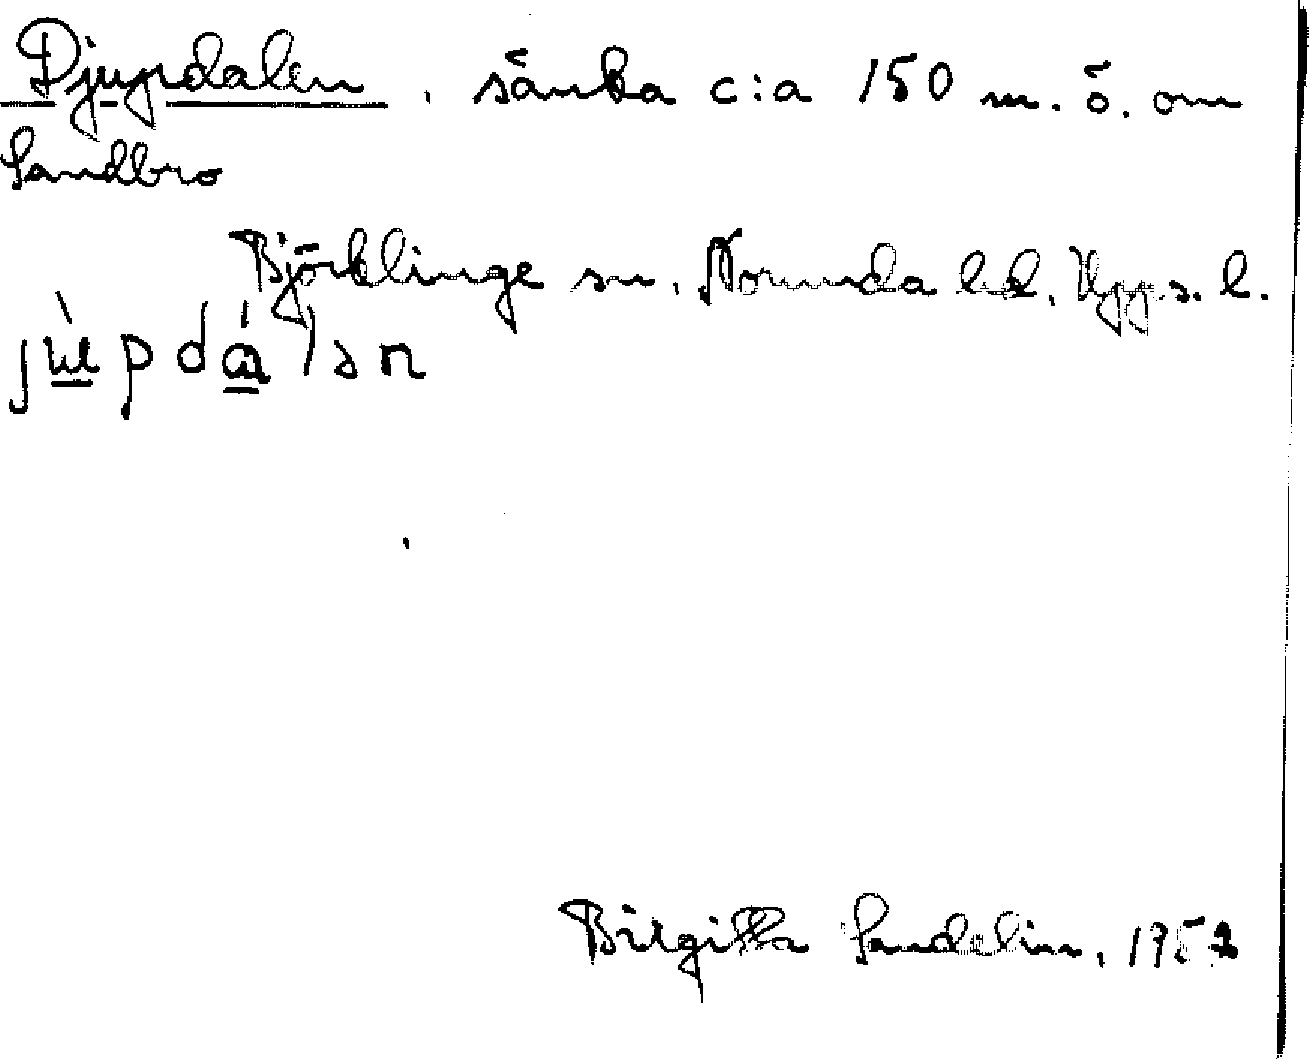 Djupdalen, sänka c:a 150 m. ö. om
Sandbro
Björklinge sn. Norunda hd. Upps. l.
jùpdálən
Birgitta Sandelin, 1952